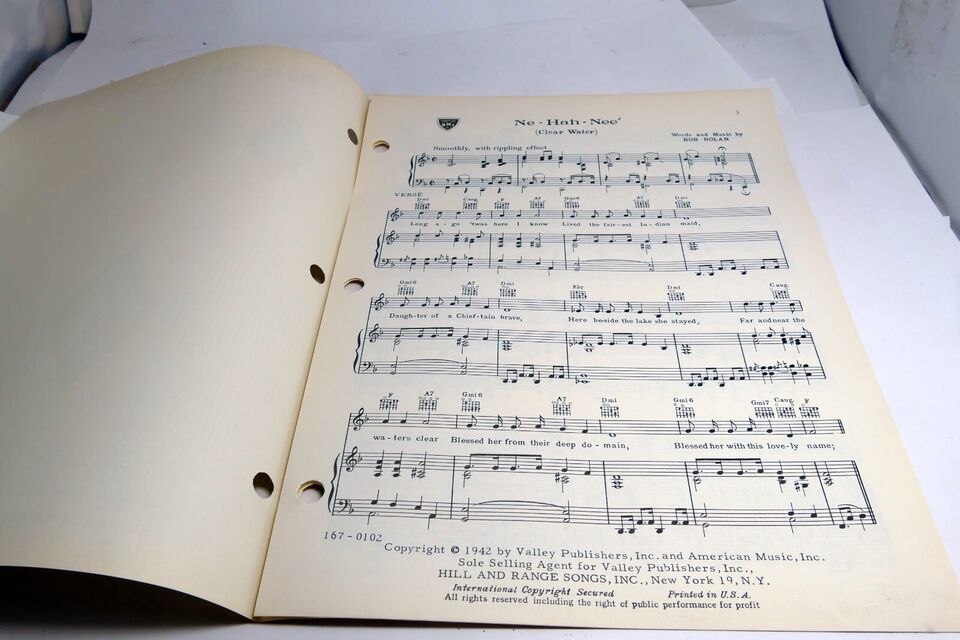 3
BMI
Ne-Hah-Nee'
(Clear Water)
Words and Music by
BOB NOLAN
Smoothly, with rippling effect
VERSE
Dmi Caug F A7 Gmi6 A7 Dmi
Long a-go 'twas here I know Lived the fair-est In-dian maid,
Gmi6 A7 Dmi Eb7 Dmi Caug.
Daugh-ter of a Chief-tain brave, Here beside the lake she stayed, Far and near the
F A7 Gmi6 A7 Dmi Gmi6 Gmi7 Caug. F
wa-ters clear Blessed her from their deep do-main, Blessed her with this love-ly name;
167-0102
Copyright © 1942 by Valley Publishers, Inc. and American Music, Inc.
Sole Selling Agent for Valley Publishers, Inc.,
HILL AND RANGE SONGS, INC., New York 19, N.Y.
International Copyright Secured Printed in U.S.A.
All rights reserved including the right of public performance for profit